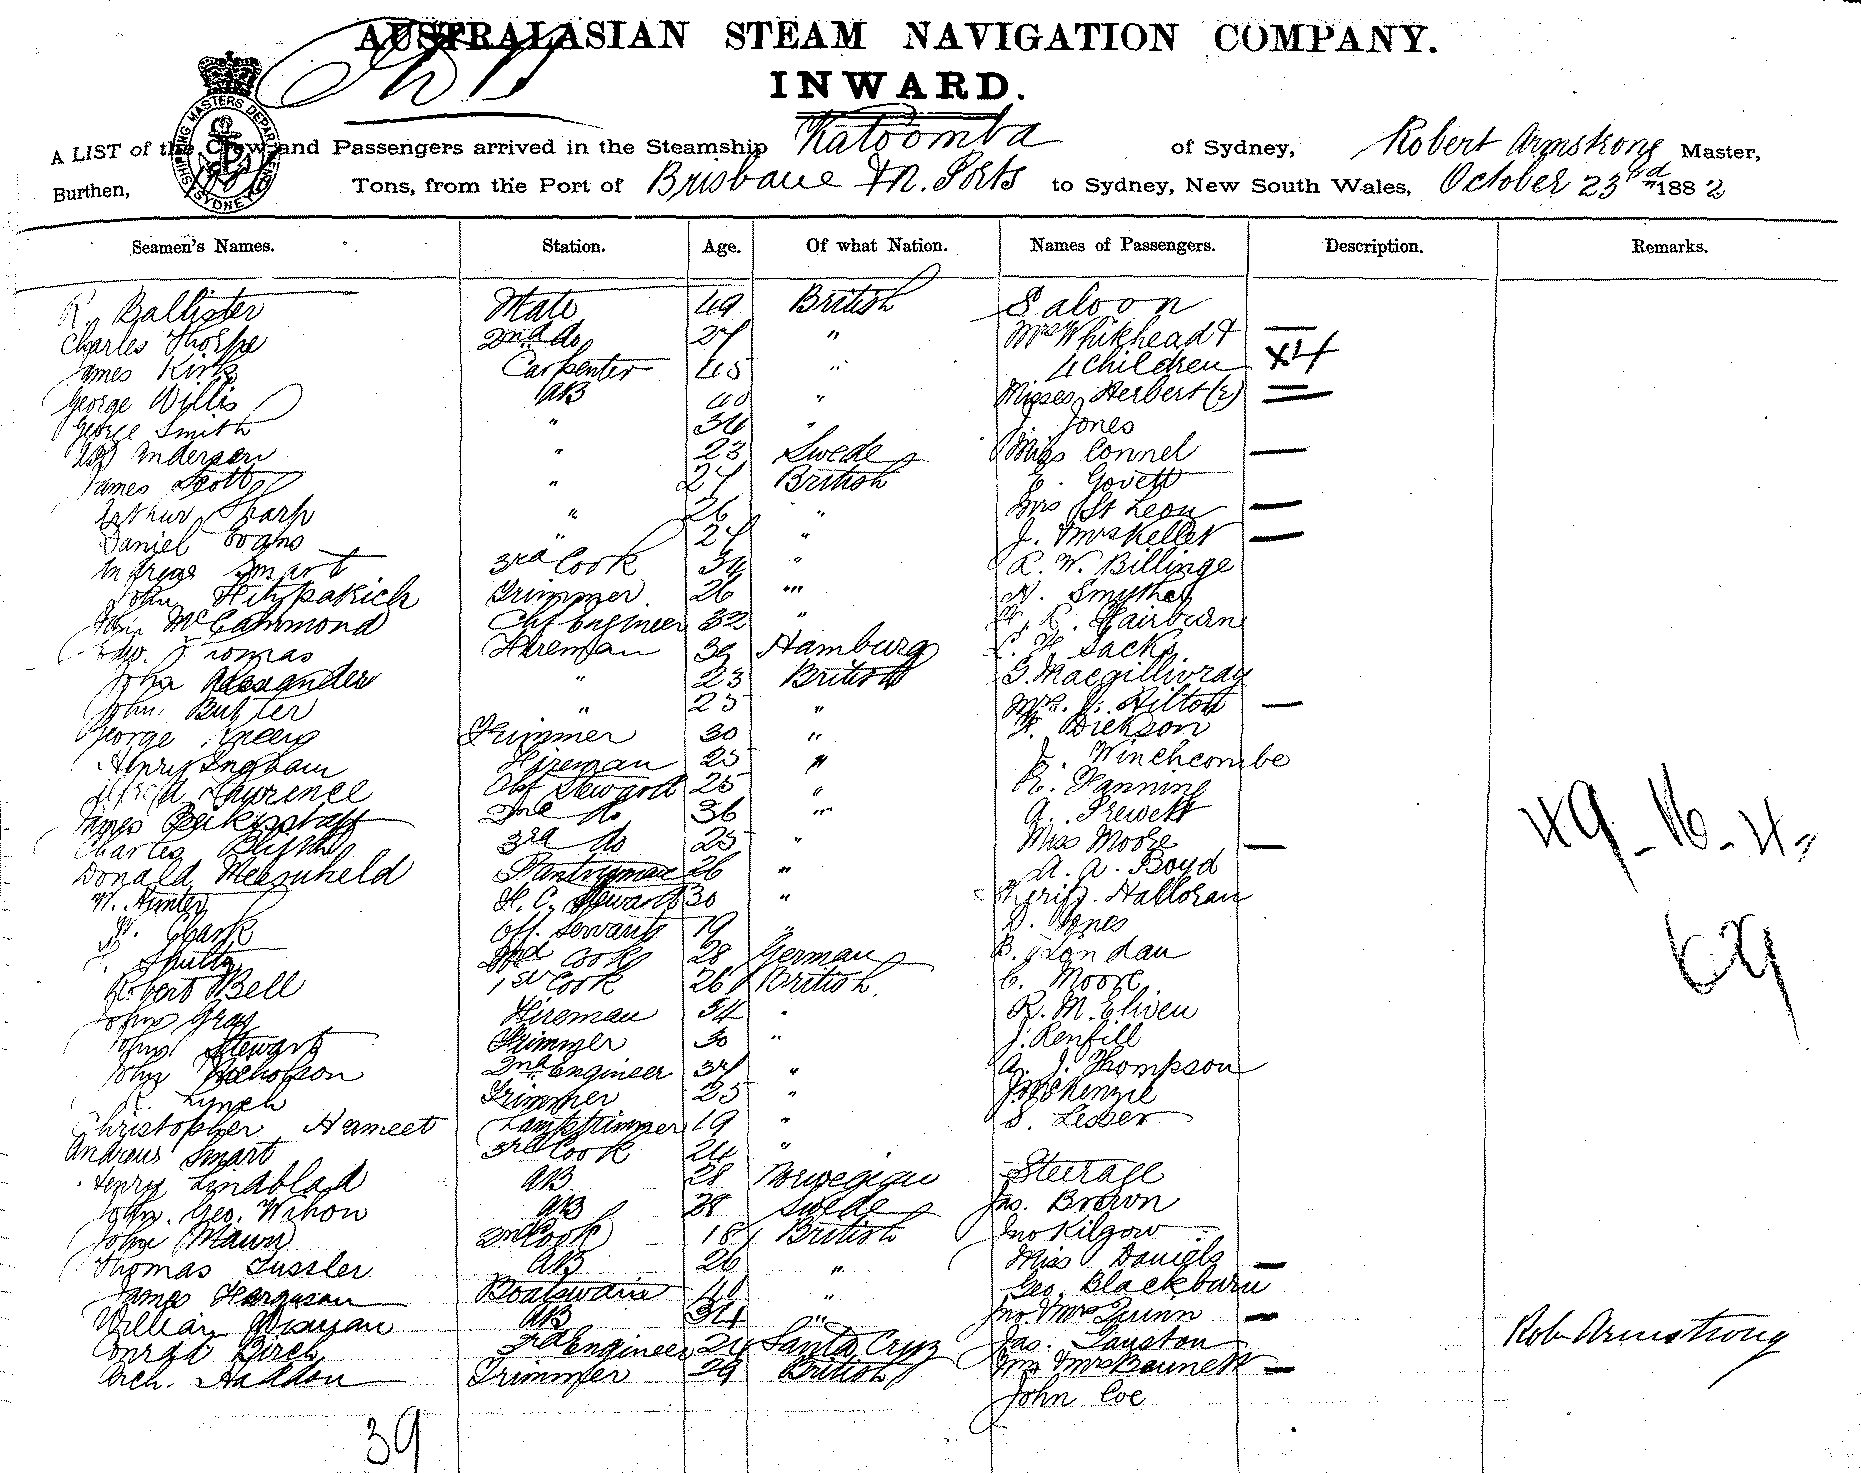 AUSTRALASIAN STEAM NAVIGATION COMPANY.
INWARD.
A LIST of the Crew and Passengers arrived in the Steamship Katoomba of Sydney, Robert Armstrong Master,
Burthen, Tons, from the Port of Brisbane & N. Ports to Sydney, New South Wales, October 23rd 1882
SHIPPING MASTERS DEPARTMENT SYDNEY
Seamen's Names. Station. Age. Of what Nation. Names of Passengers. Description. Remarks.
R. Ballister Mate 49 British Saloon
Charles Thorpe 2nd do 27 " Mrs Whitehead &
James Kirk Carpenter 45 " 4 Children X4
George Willis AB 40 " Misses Herbert (2)
George Smith " 34 " J. Jones
Anderson " 23 Swede Miss Connel
James Scott " 27 British E. Govett
Arthur Sharp " 26 " Mrs St Leon
Daniel Evans " 27 " J. & Mrs Keller
Smart 3rd Cook " R. W. Billinge
John Fitzpatrick Trimmer 26 " Smythe
McCammond Chf Engineer 32 " Fairburn
Thomas Fireman 39 Hamburg Sacks
John Alexander " 23 British G. Macgillivray
John Butter " 25 " Hilton
George Trimmer 30 " Dickson
Henry Ingham Fireman 25 " Winchcombe
Alfred Lawrence Chf Steward 25 " R. Fanning
James 2nd do 36 " A. Prewett
Charles 3rd do 25 " Miss Moore
Donald Pantryman 26 " A. A. Boyd
W. Hunter F. C. Steward 30 " Sheriff Halloran
Clark Off. Servant 19 " Jones
2nd Cook 28 German B. Londau
Robert Bell 1st Cook 26 British C. Moore
John Gray Fireman 34 " R. M.
John Stewart Trimmer 30 " J. Renfill
John Nicholson 2nd Engineer 34 " A. J. Thompson
R. Lynch Trimmer 25 " J. McKenzie
Christopher Hameet Lamptrimmer 19 " S. Lesser
Andrew Smart 3rd Cook 24 "
Henry Lindblad AB 28 Norwegian Steerage
John. Geo. Wihon AB 28 Swede Jas. Brown
John Maun 2nd Cook 18 British Jno Kilgow
Thomas Tussler AB 26 " Miss Daniels
James Ferguson Boatswain 40 " Geo. Blackburn
William AB 34 " Jno. & Mrs Quinn
Conrad Birch 3rd Engineer 24 Santa Cruz Jas. Lauston
Arch. Haddon Trimmer 29 British Mr & Mrs Bennett
John Coe
39
49 - 16 - 4
69
Rob Armstrong